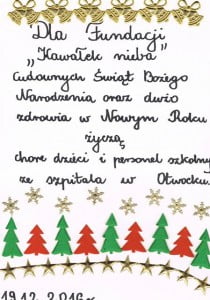 Dla Fundacji
„Kawałek nieba"
Cudownych Świąt Bożego
Narodzenia oraz dużo
zdrowia w Nowym Roku
życzą
chore dzieci i personel szkolny
ze szpitala w Otwocku
19.12.2016r